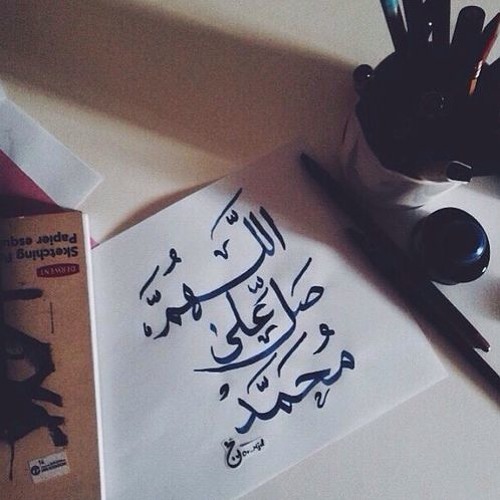 اللَّهُمَّ
صَلِّ عَلَى
مُحَمَّدٍ
Sketching
Papier esqu
DERWENT